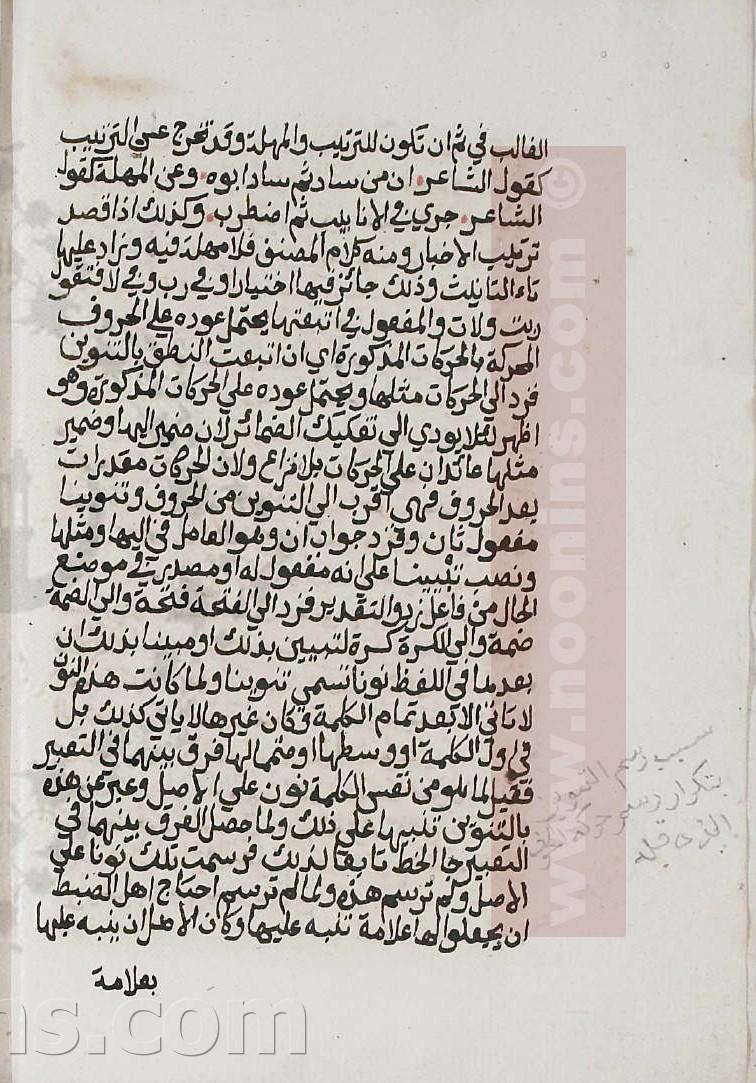 الغالب في ثم ان تكون للترتيب والمهلة وقد تخرج عن الترتيب
كقول الشاعر ان من ساد ثم ساد ابوه وعن المهلة كقول
الشاعر جري في الانابيب ثم اضطرب وكذلك اذا قصد
ترتيب الاخبار ومنه كلام المصنف فلا مهلة فيه وتزاد عليها
تاء التانيث وذلك جائز فيها اختيارا وفي رب وفي لا فتقول
ربت ولات والمفعول في اتبعتها يحتمل عوده علي الحروف
المحركة بالحركات المذكورة اي ان اتبعت النطق بالتنوين
فزد الي الحركات مثلها ويحتمل عوده علي الحركات المذكورة وهو
اظهر لئلا يودي الي تفكيك الضمائر لان ضمير اليها وضمير
مثلها عائدان علي الحركات بلا نزاع ولان الحركات مقدرات
بعد الحروف فهي اقرب الي التنوين من الحروف وتنوينا
مفعول ثان وفزد جواب ان وهو العامل في اليها ومثلها
ونصب تبيينا علي انه مفعول له او مصدر في موضع
الحال من فاعل زد والتقدير فزد الي الفتحة فتحة والي الضمة
ضمة والي الكسرة كسرة لتبيين بذلك او مبينا بذلك ان
بعدها في اللفظ نونا تسمي تنوينا ولما كانت هذه النون
لا تاتي الا بعد تمام الكلمة وكان غيرها لا ياتي كذلك بل
في اول الكلمة او وسطها او متمما لها فرق بينهما في التعبير
فقيل لما هو من نفس الكلمة نون علي الاصل وعبر عن هذه
بالتنوين تنبيها علي ذلك ولما حصل الفرق بينهما في
التعبير جا الخط تابعا لذلك فرسمت تلك نونا علي
الاصل ولم ترسم هذه ولما لم ترسم احتاج اهل الضبط
ان يجعلوا لها علامة تنبه عليها وكان الاصل ان ينبه عليها
بعلامة
سبب رسم التنوين
بتكرار رسم حركة الحرف
الذي قبله
www.noonins.com ©
ns.com